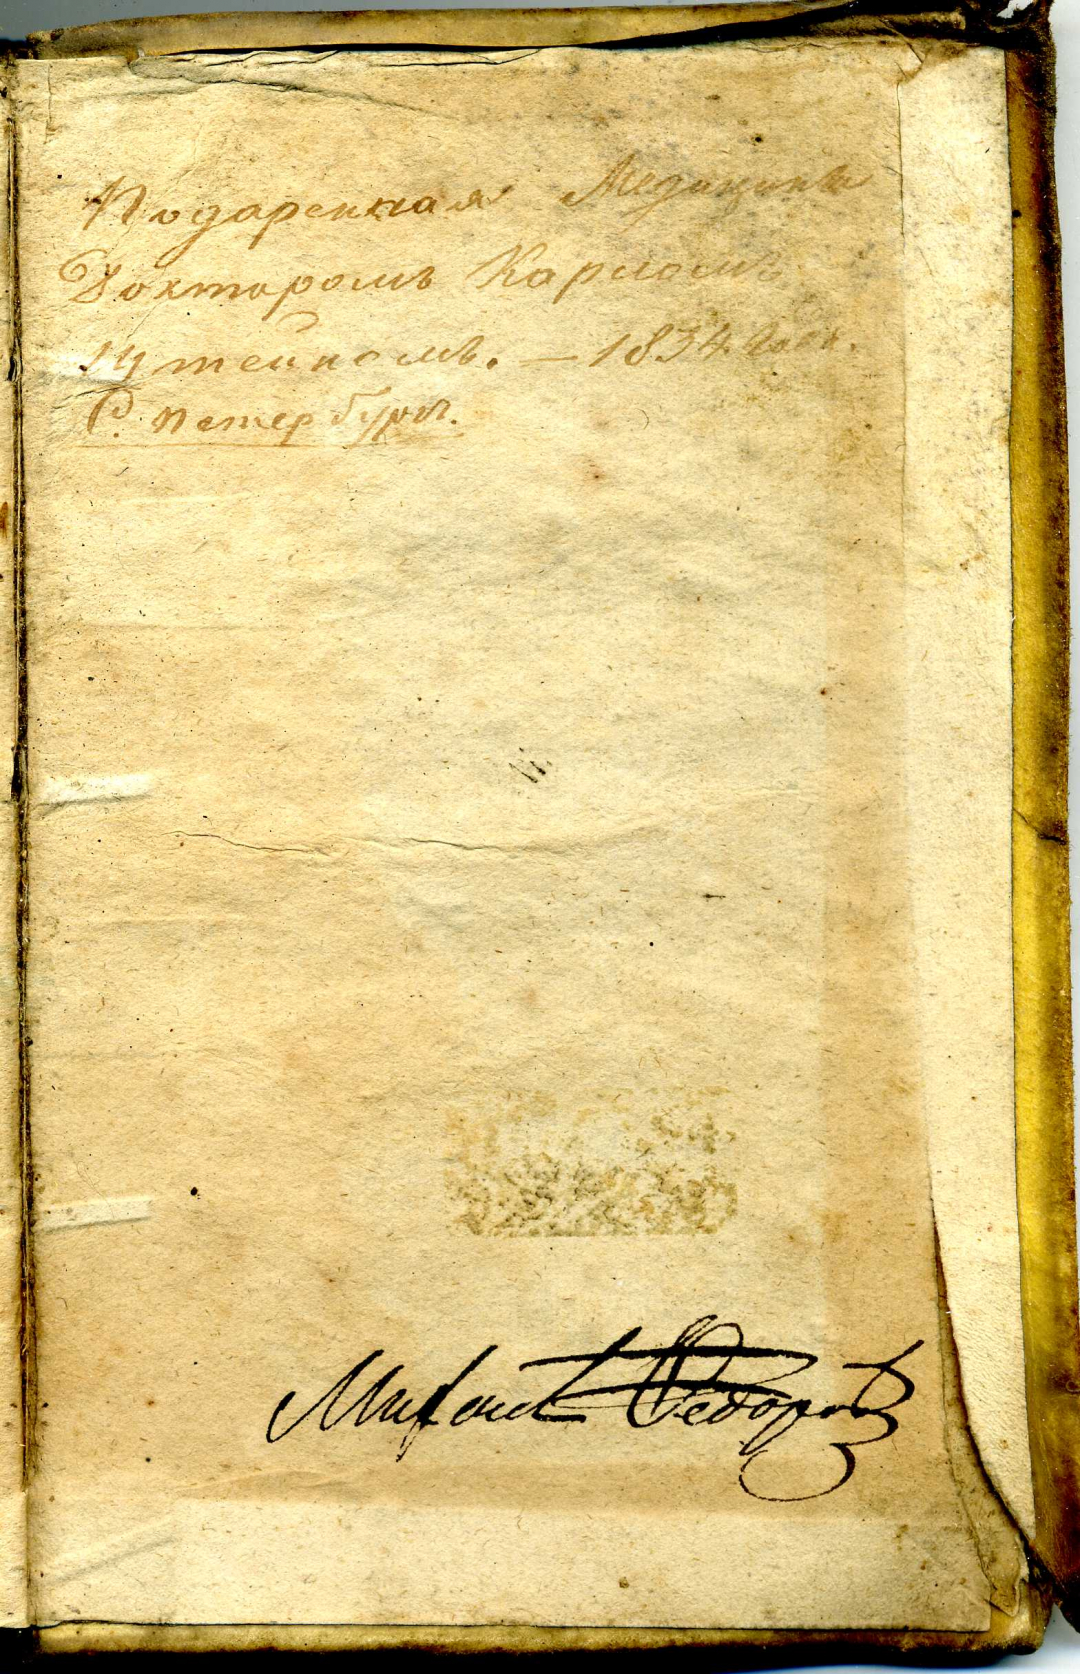 Подаренная Медицины
Докторомъ Карломъ
Штейномъ. — 1834. года.
С. Петербургъ.
Михаилъ Федоровъ